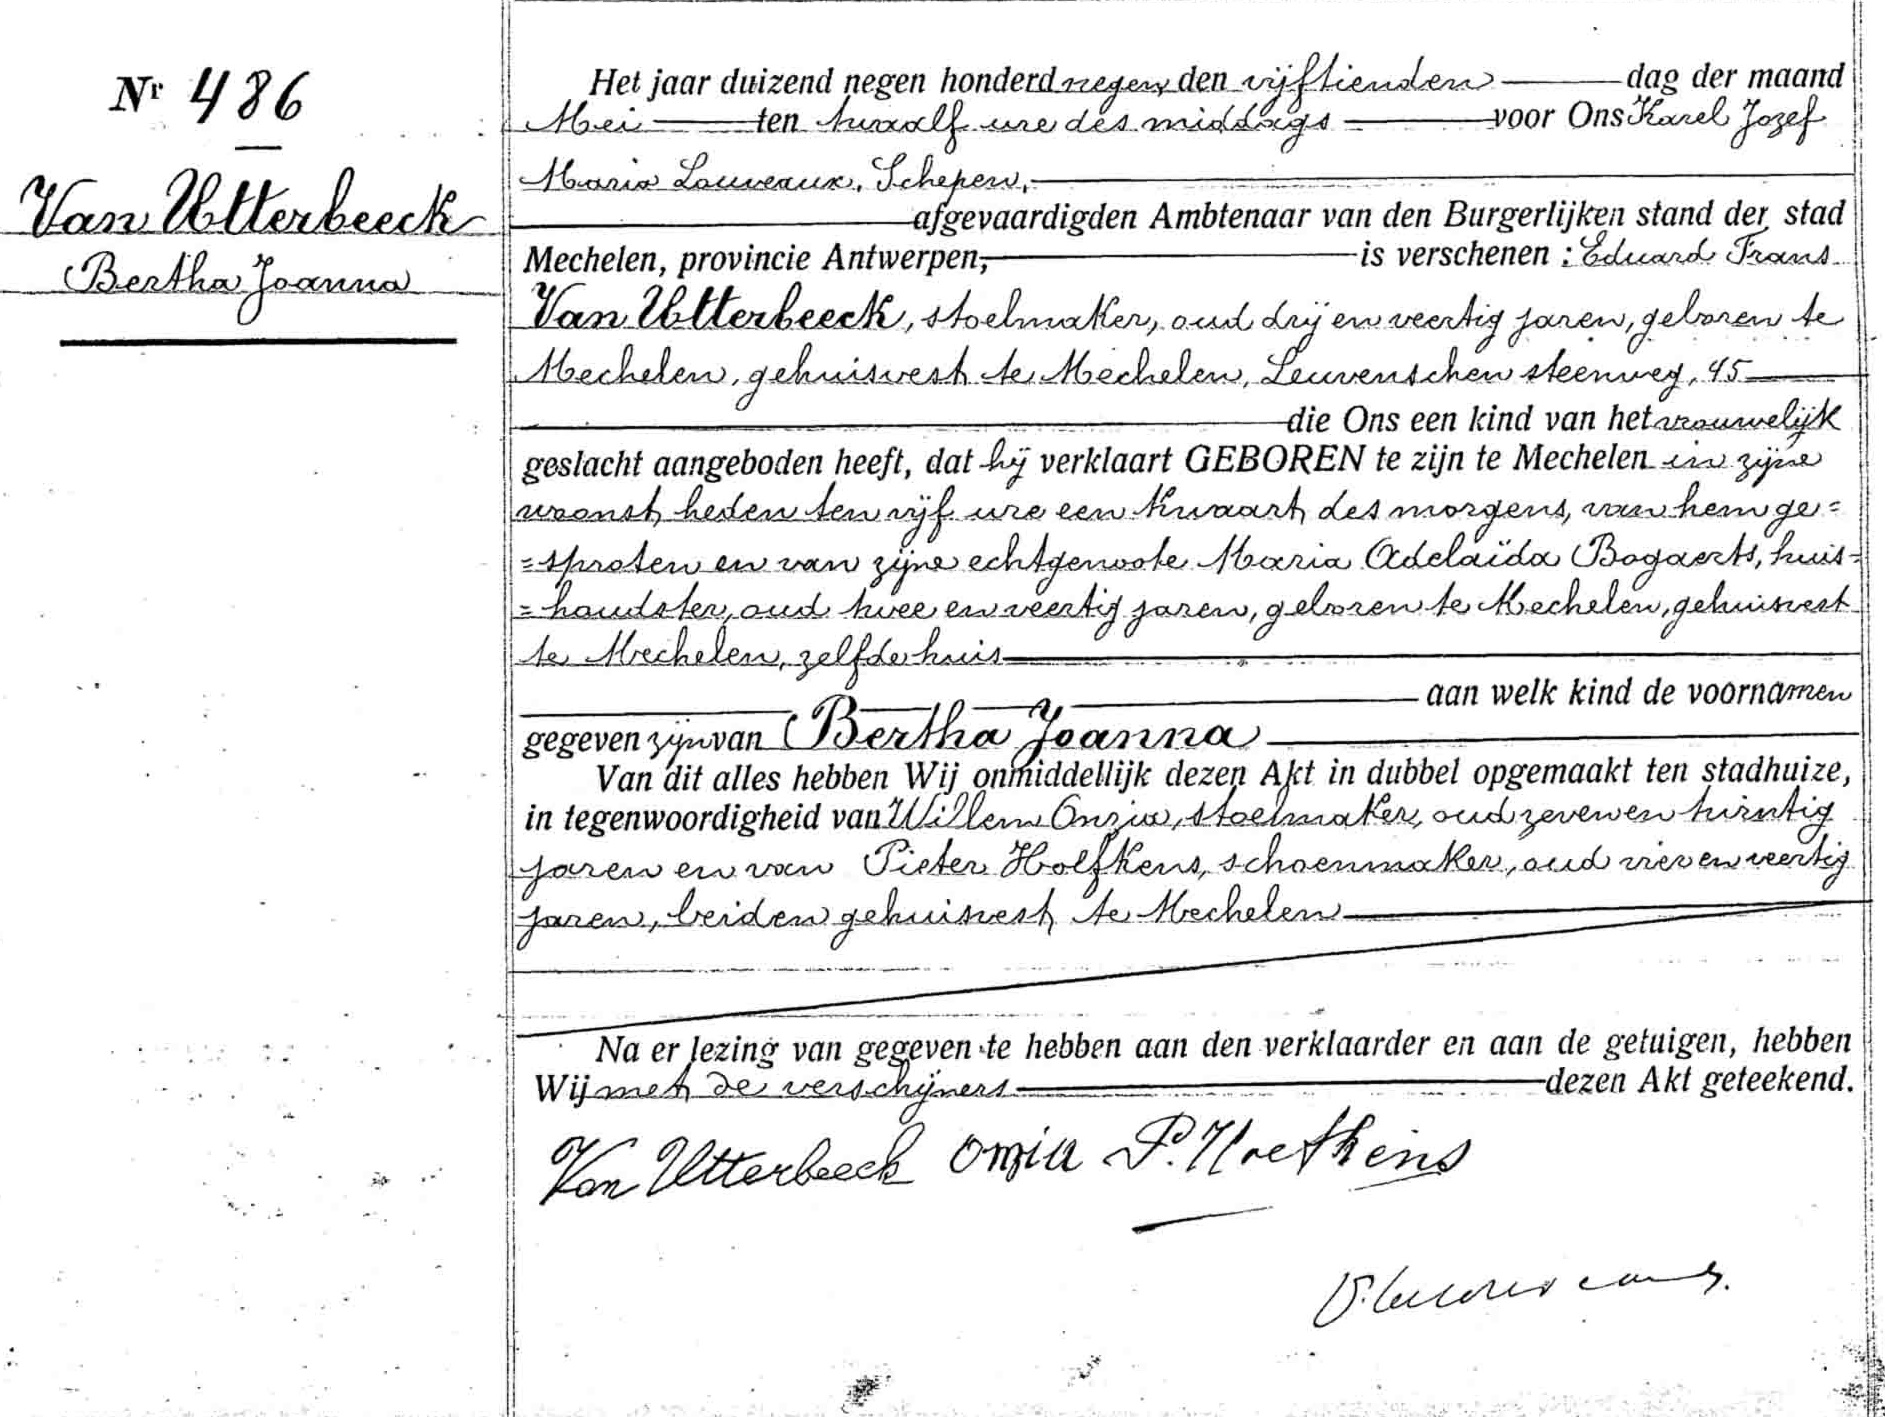 Nr 486
Van Utterbeeck
Bertha Joanna
Het jaar duizend negen honderd negen den vijftienden dag der maand
Mei ten twaalf ure des middags voor Ons Karel Jozef
Maria Louveaux, Schepen,
afgevaardigden Ambtenaar van den Burgerlijken stand der stad
Mechelen, provincie Antwerpen, is verschenen : Eduard Frans
Van Utterbeeck, stoelmaker, oud drij en veertig jaren, geboren te
Mechelen, gehuisvest te Mechelen, Leuvenschen steenweg, 45
die Ons een kind van het vrouwelijk
geslacht aangeboden heeft, dat hij verklaart GEBOREN te zijn te Mechelen in zijne
woonst heden ten vijf ure een kwaart des morgens, van hem ge=
=sproten en van zijne echtgenoote Maria Adelaïda Bogaerts, huis=
=houdster, oud twee en veertig jaren, geboren te Mechelen, gehuisvest
te Mechelen, zelfde huis
aan welk kind de voornamen
gegeven zijn van Bertha Joanna
Van dit alles hebben Wij onmiddellijk dezen Akt in dubbel opgemaakt ten stadhuize,
in tegenwoordigheid van Willem Onzia, stoelmaker, oud zeven en twintig
jaren en van Pieter Hoefkens, schoenmaker, oud vier en veertig
jaren, beiden gehuisvest te Mechelen
Na er lezing van gegeven te hebben aan den verklaarder en aan de getuigen, hebben
Wij met de verschijners dezen Akt geteekend.
Van Utterbeeck Onzia P. Hoefkens